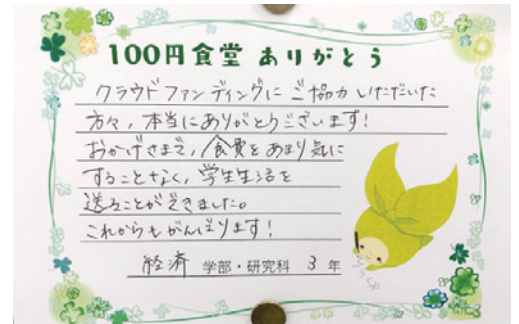 100円食堂 ありがとう
クラウドファンディングにご協力いただいた
方々,本当にありがとうございます!
おかげさまで,食費をあまり気に
することなく,学生生活を
送ることができました。
これからもがんばります!
経済 学部・研究科 3 年